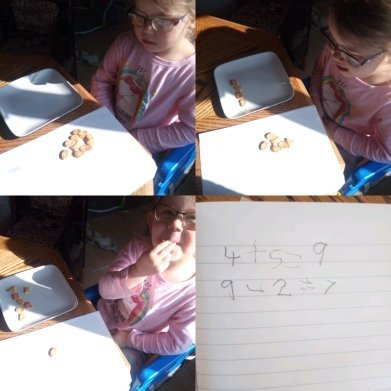 4 + 5 = 9
9 - 2 = 7